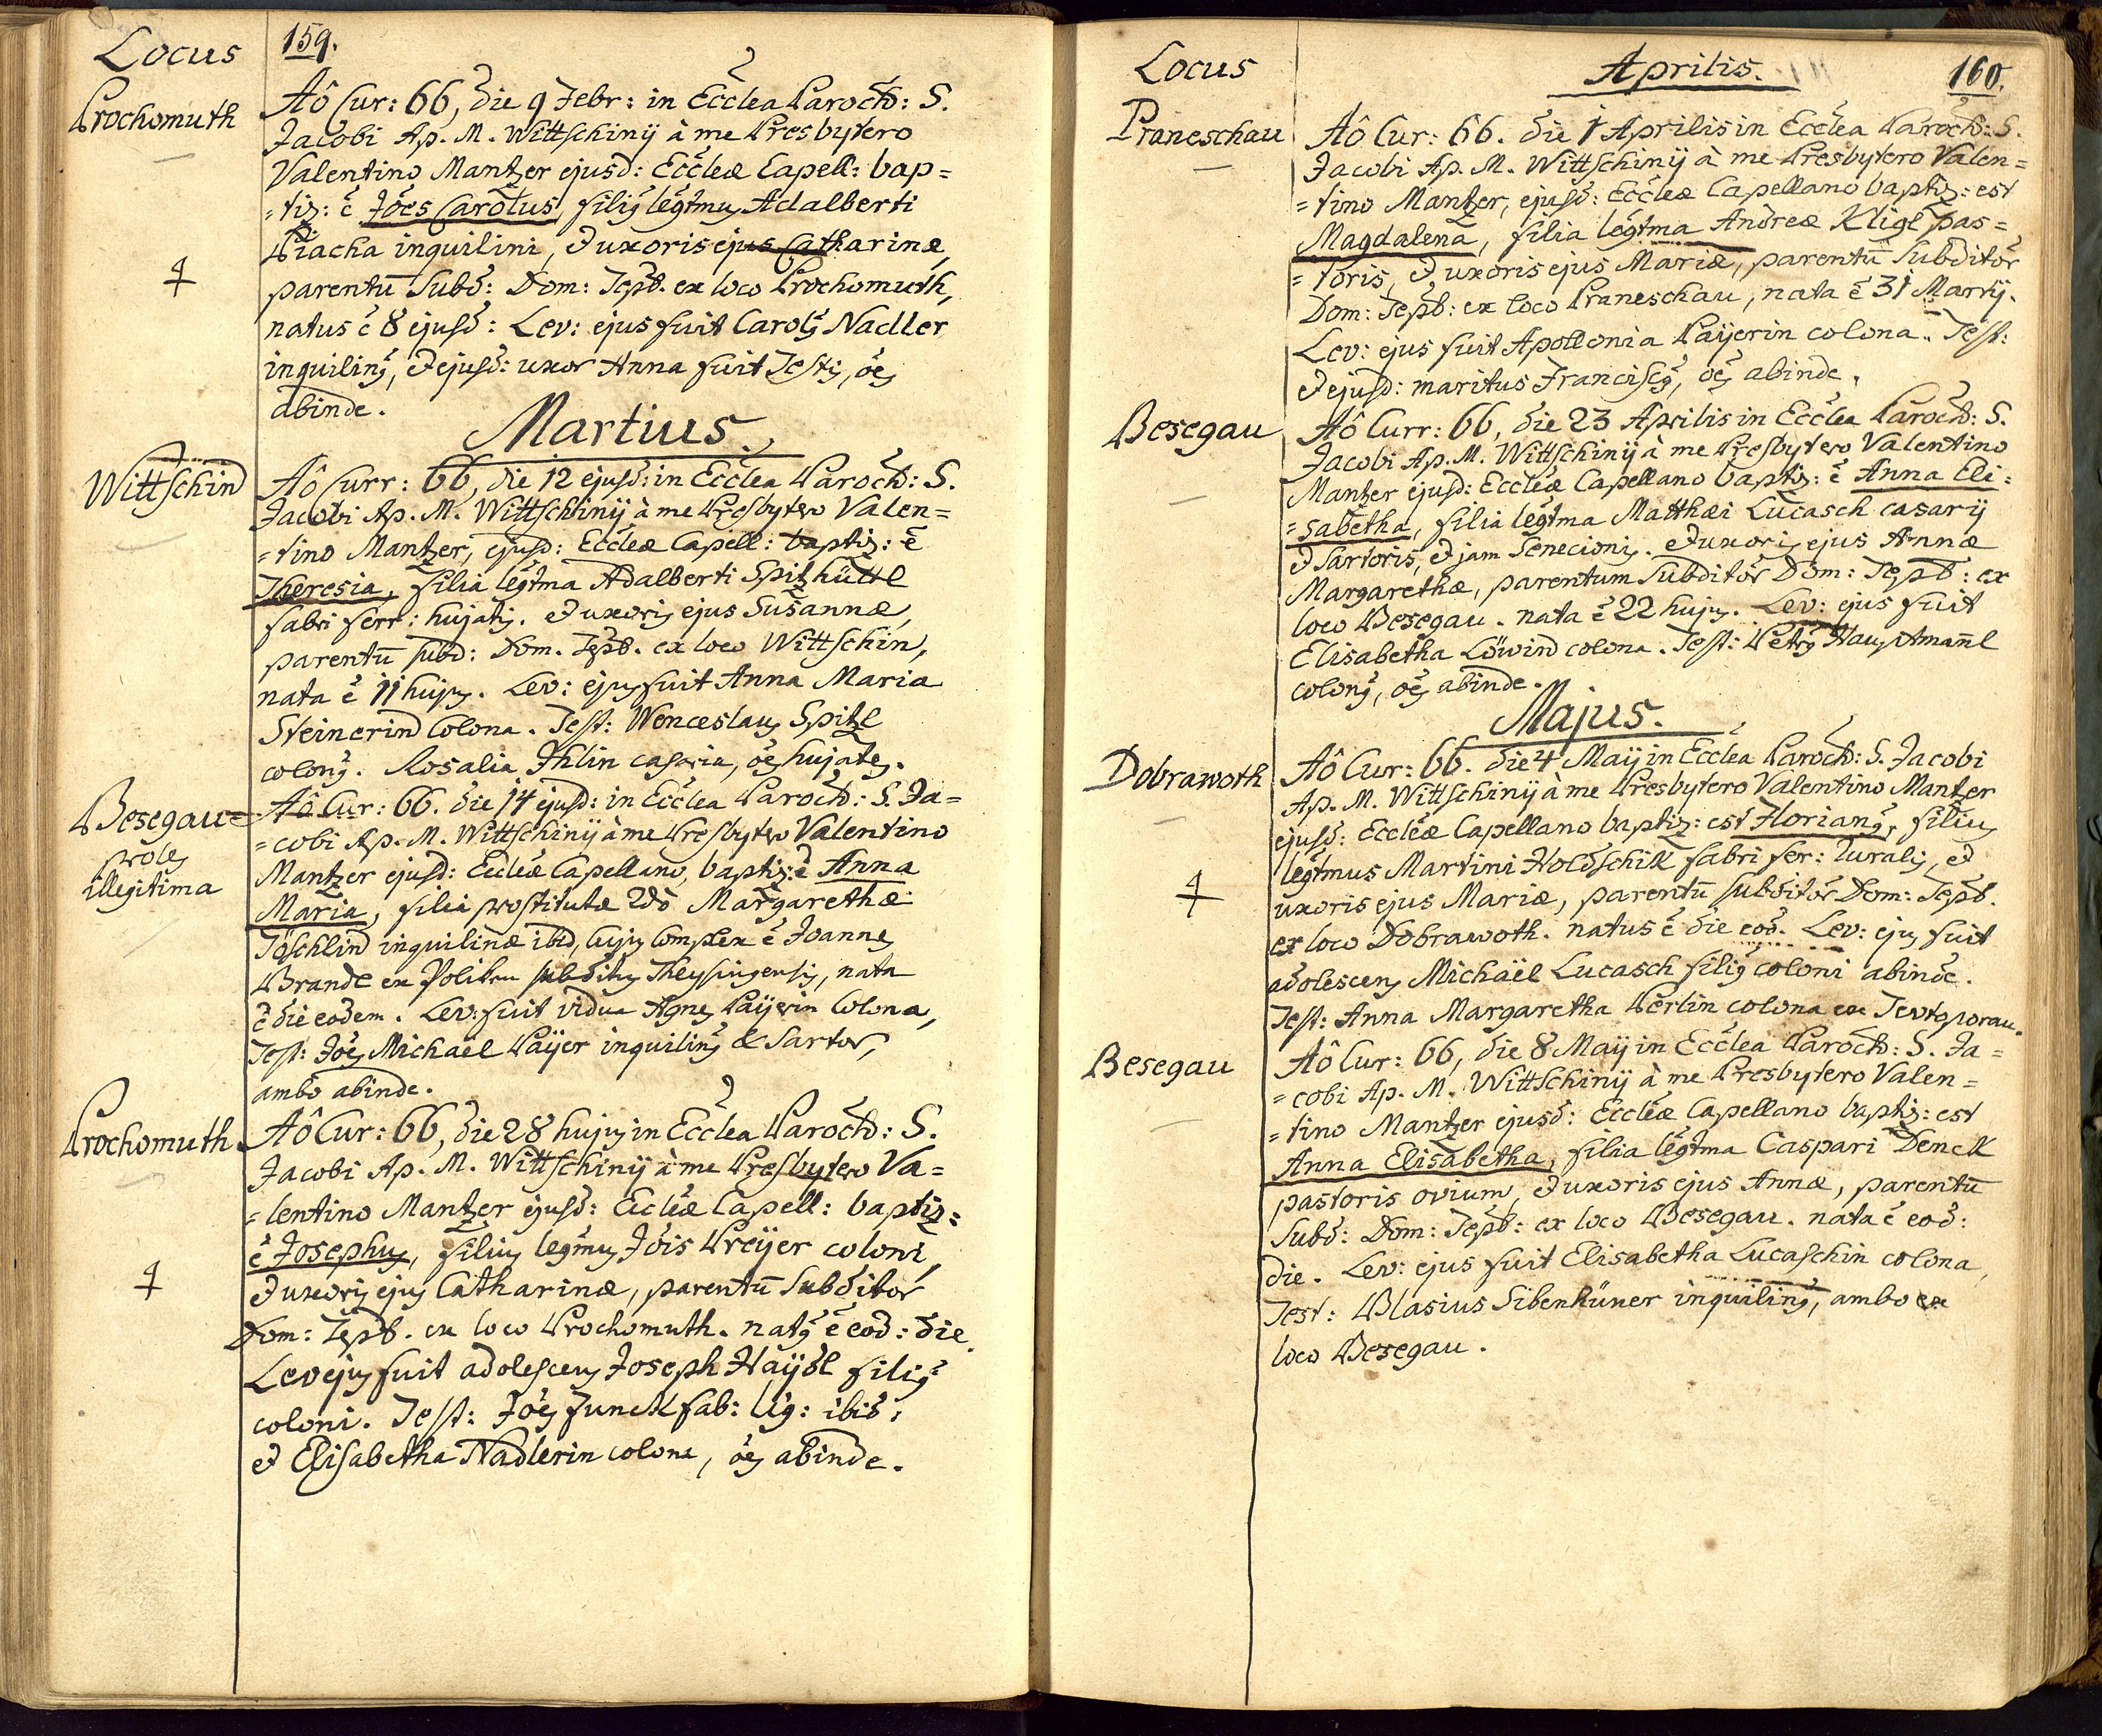 Locus
159.
Prochomuth
Aô Cur: 66, die 9 Febr: in Ecclea Paroch: S.
Jacobi Ap. M. Wittschinij à me Presbytero
Valentino Mantzer ejusd: Eccleæ Capell: bap=
=tiz: ê Joes Carolus, filiꝰ legtmuꝰ Adalberti
inquilini, et uxoris ejus Catharinæ,
parentū Subd: Dom: Tepl. ex loco Prochomuth,
natus ê 8 ejusd: Lev: ejus fuit Carolꝰ Nadler
inquilinꝰ, et ejusd: uxor Anna fuit Testis, oes
abinde.
Martius.
Wittschin
Aô Curr: 66, die 12 ejusd: in Ecclea Paroch: S.
Jacobi Ap. M. Wittschinij à me Presbytero Valen=
=tino Mantzer, ejusd: Eccleæ Capell: baptiz: ê
Theresia, filia legtma Adalberti Spitzhüttl
fabri ferr: hujatis. et uxoris ejus Susannæ,
parentū subd: Dom. Tepl. ex loco Wittschin,
nata ê 11 hujus. Lev: ejus fuit Anna Maria
Steinerin Colona. Test: Wenceslaus Spitzl
colonꝰ. Rosalia Ihlin casaria, oes hujates.
Besegau
proles
illegitima
Aô Cur: 66. die 14 ejusd: in Ecclea Paroch: S. Ja=
=cobi Ap. M. Wittschinij à me Presbytero Valentino
Mantzer ejusd: Eccleæ Capellano, baptiz: ê Anna
Maria, filia prostitutæ 2do Margarethæ
Töschlin inquilinæ ibid, cujus Complex ê Joannes
Brandl ex subditus Theysingensis, nata
ê die eodem. Lev: fuit vidua Agnes Paÿerin Colona,
Test: Joes Michaël Paÿer inquilinꝰ & Sartor,
ambo abinde.
Prochomuth
Aô Cur: 66, die 28 hujus in Ecclea Paroch: S.
Jacobi Ap. M. Wittschinij à me Presbytero Va=
=lentino Mantzer ejusd: Eccleæ Capell: baptiz:
ê Josephus, filius legtmus Jois Preÿer coloni,
et uxoris ejus Catharinæ, parentū Subditor
Dom: Tepl. ex loco Prochomuth. natꝰ ê eod: die.
Lev ejus fuit adolescens Joseph Haÿdl filiꝰ
coloni. Test: Joes Funck fab: lig: ibid:
et Elisabetha Nadlerin colona, oes abinde.
Locus
Aprilis.
160.
Praneschau
Aô Cur: 66. die 1 Aprilis in Ecclea Paroch: S.
Jacobi Ap. M. Wittschinij à me Presbytero Valen=
=tino Mantzer, ejusd: Eccleæ Capellano baptiz: est
Magdalena, filia legtma Andreæ Kligl pas=
=toris, et uxoris ejus Mariæ, parentū Subditor
Dom: Tepl: ex loco Praneschau, nata ê 31 Martij.
Lev: ejus fuit Apollonia Paÿerin colona. Test:
et ejusd: maritus Franciscꝰ, oes abinde.
Besegau
Aô Curr: 66, die 23 Aprilis in Ecclea Paroch: S.
Jacobi Ap. M. Wittschinij à me Presbytero Valentino
Mantzer ejusd: Eccleæ Capellano baptiz: ê Anna Eli=
=sabetha, filia legtma Matthæi Lucasch casarij
et Sartoris, et jam Senecionis. et uxoris ejus Annæ
Margarethæ, parentum Subditor Dom: Tepl: ex
loco Besegau. nata ê 22 hujus. Lev: ejus fuit
Elisabetha Löwin colona. Test: Petrꝰ Hausamañl
colonꝰ, oes abinde.
Majus.
Dobrawoth
Aô Cur: 66. die 4 Maij in Ecclea Paroch: S. Jacobi
Ap. M. Wittschinij à me Presbytero Valentino Mantzer
ejusd: Eccleæ Capellano baptiz: est Florianꝰ, filius
legtmus Martini Holdschik fabri fer: Turalis, et
uxoris ejus Mariæ, parentū subditor Dom: Tepl.
ex loco Dobrawoth. natus ê die eod. Lev: ejus fuit
adolescens Michaël Lucasch filiꝰ coloni abinde.
Test: Anna Margaretha Perlin colona ex
Besegau
Aô Cur: 66, die 8 Maij in Ecclea Paroch: S. Ja=
=cobi Ap. M. Wittschinij à me Presbytero Valen=
=tino Mantzer ejusd: Eccleæ Capellano baptiz: est
Anna Elisabetha, filia legtma Caspari Denck
pastoris ovium, et uxoris ejus Annæ, parentū
Subd: Dom: Tepl: ex loco Besegau. nata ê eod:
die. Lev: ejus fuit Elisabetha Lucaschin colona,
Test: Blasius Sibenhüner inquilinꝰ, ambo ex
loco Besegau.